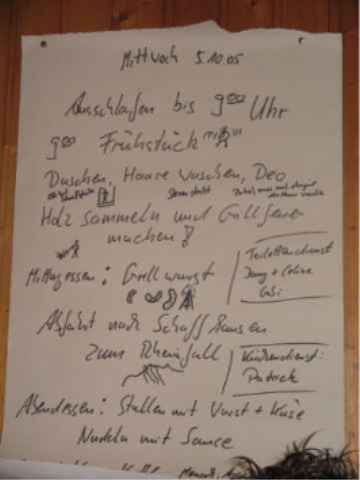 Mittwoch 5.10.05
Ausschlafen bis 9⁰⁰ Uhr
9⁰⁰ Frühstück
Duschen, Haare waschen, Deo
Holz sammeln und Grillfeuer
machen!
Toilettendienst
Mittagessen: Grillwurst
Abfahrt nach Schaffhausen
zum Rheinfall
Küchendienst:
Patrick
Abendessen: Stullen mit Wurst + Käse
Nudeln mit Sauce